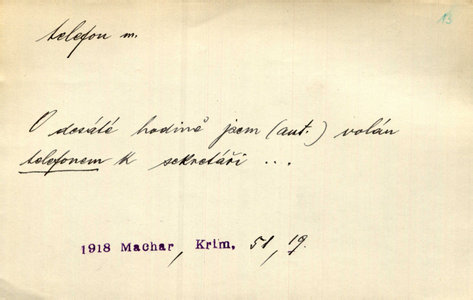 13
telefon m.
O desáté hodině jsem (aut.) volán
telefonem k sekretáři ...
1918 Machar, Krim, 51, 19.